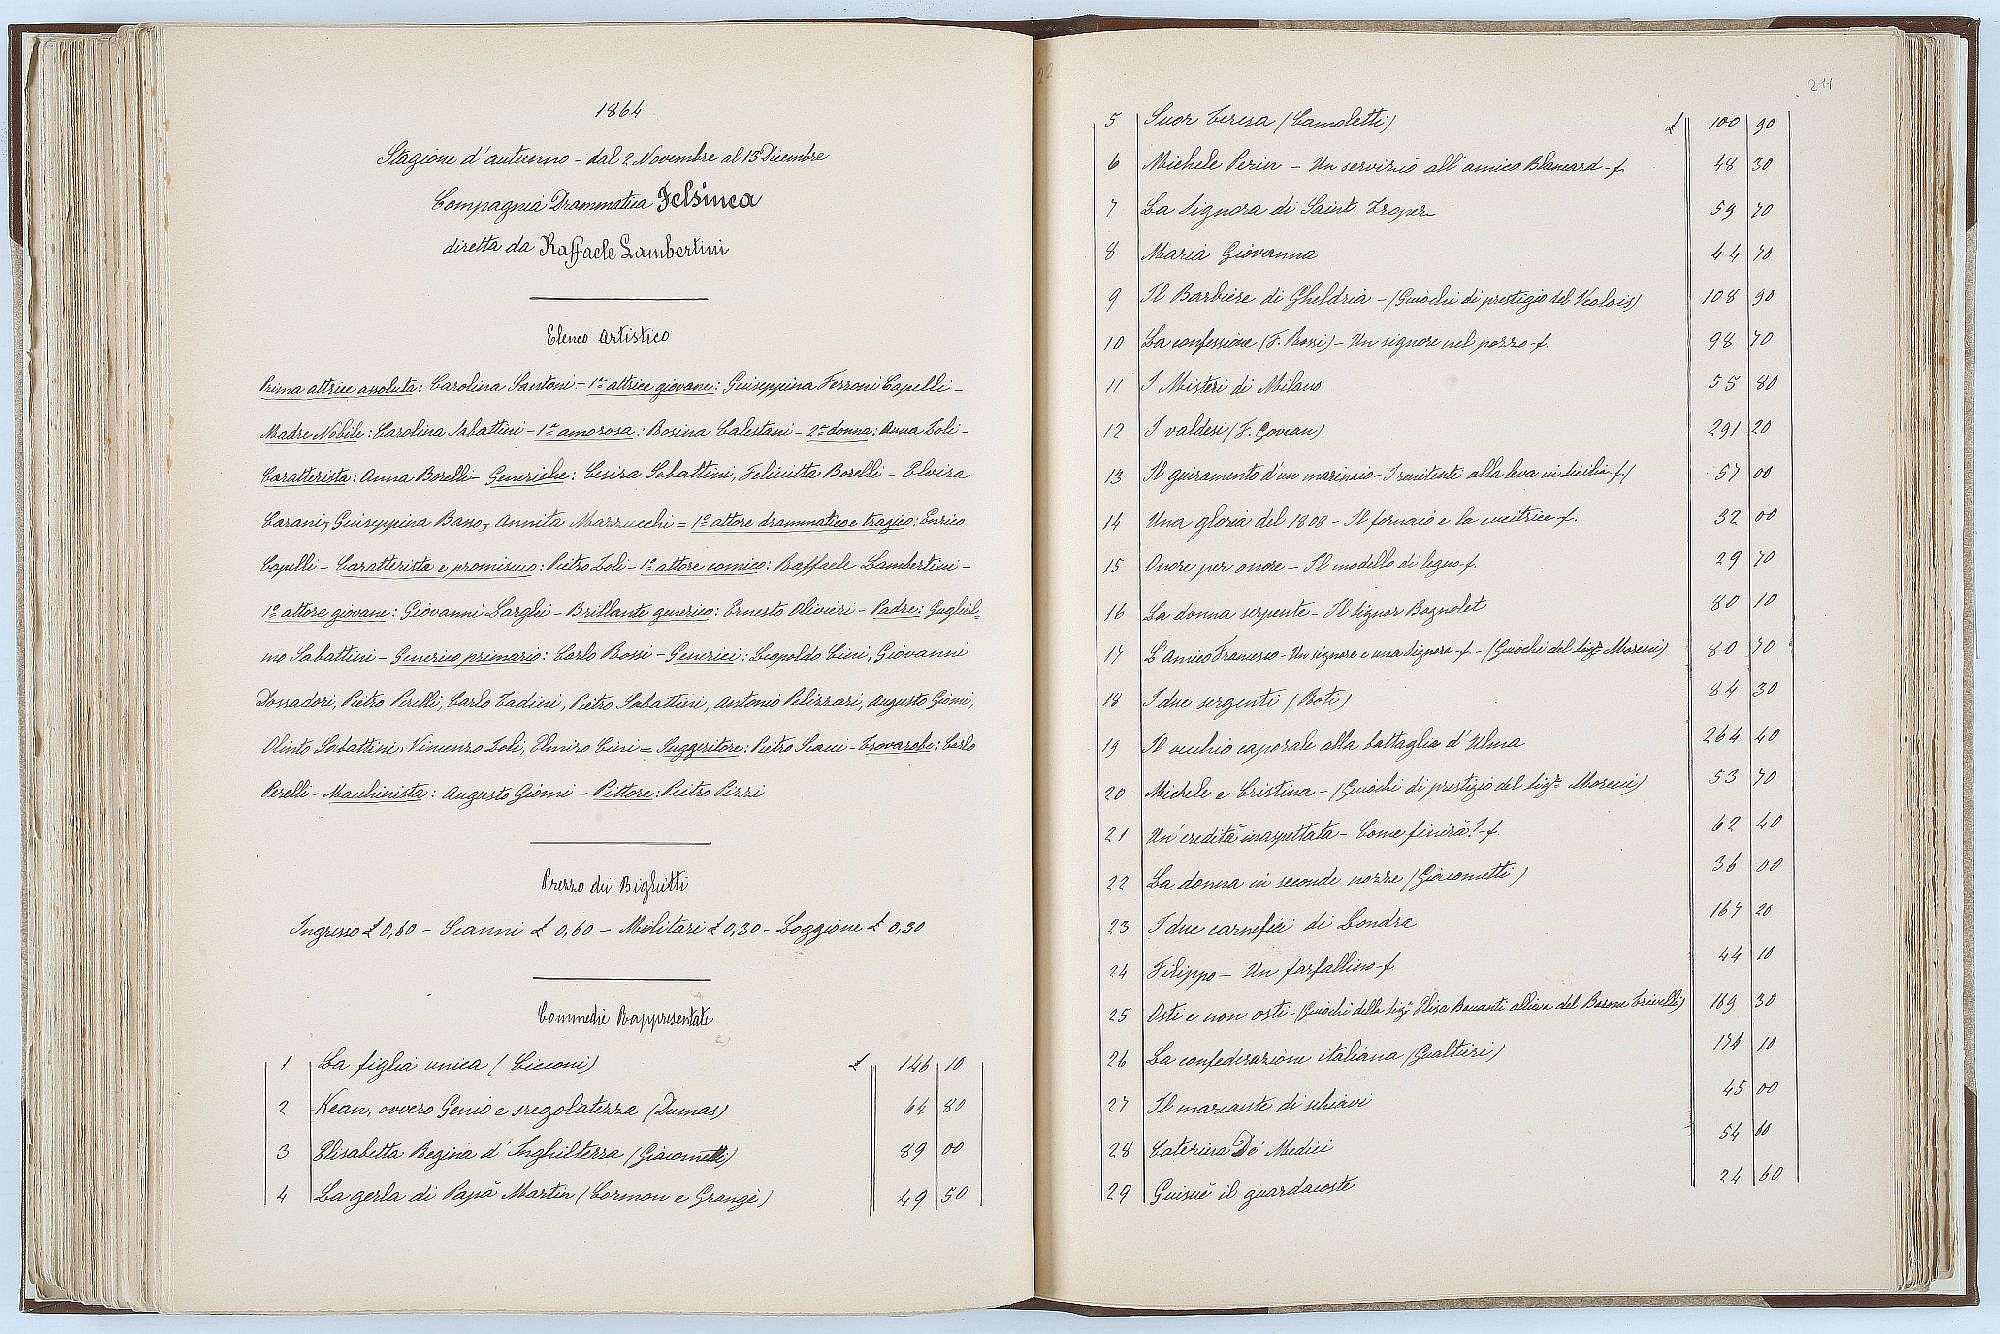 1864
Stagione d'autunno - dal 2 Novembre al 15 Dicembre
Compagnia Drammatica Felsinea
diretta da Raffaele Lambertini
Elenco Artistico
Prima attrice assoluta: Carolina Santoni - 1ª attrice giovane: Giuseppina Ferroni Capelli -
Madre Nobile: Carolina Sabattini - 1ª amorosa: Rosina Calestani - 2ª donna: Anna Zoli -
Caratterista: Anna Borelli - Generiche: Cesira Sabattini, Felicitta Borelli - Elvira
Carani, Giuseppina Basso, Annita Mazzucchi = 1° attore drammatico e tragico: Enrico
Capelli - Caratterista e promiscuo: Pietro Zoli - 1° attore comico: Raffaele Lambertini -
1° attore giovane: Giovanni Sarghi - Brillante generico: Ernesto Olivieri - Padre: Gugliel-
mo Sabattini - Generico primario: Carlo Rossi - Generici: Leopoldo Cini, Giovanni
Dossadori, Pietro Perelli, Carlo Tadini, Pietro Sabattini, Antonio Pelizzari, Augusto Giomi,
Olinto Sabattini, Vincenzo Zoli, Elmiro Cini = Suggeritore: Pietro - Trovarobe: Carlo
Perelli - Macchinista: Augusto Giomi - Pittore: Pietro Pezzi
Prezzo dei Biglietti
Ingresso £ 0,60 - Scanni £ 0,60 - Militari £ 0,30 - Loggione £ 0,30
Commedie Rappresentate
1 La figlia unica (Cicconi) £ 146 10
2 Kean, ovvero Genio e sregolatezza (Dumas) 64 80
3 Elisabetta Regina d'Inghilterra (Giacometti) 89 00
4 La gerla di Papà Martin (Cormon e Grangè) 49 50
211
5 Suor Teresa (Camoletti) £ 100 90
6 Michele Perin - Un servizio all'amico Blancard - f. 48 30
7 La Signora di Saint Tropez 59 70
8 Maria Giovanna 44 70
9 Il Barbiere di Gheldria - (Giuochi di prestigio del ) 108 90
10 La confessione (F. Rossi) - Un signore nel pozzo - f. 98 70
11 I Misteri di Milano 55 80
12 I valdesi (F. Govean) 291 20
13 Il giuramento d'un marinaio - I renitenti alla leva in Sicilia - f. 57 00
14 Una gloria del 1808 - Il fornaio e la cucitrice - f. 32 00
15 Onore per onore - Il modello di legno - f. 29 70
16 La donna serpente - Il Signor Bagnolet 80 10
17 L'Amico Francesco - Un signore e una Signora - f. - (Giuochi del Sigr. Moreni) 80 70
18 I due sergenti (Roti) 84 30
19 Il vecchio caporale alla battaglia d'Ulma 264 40
20 Michele e Cristina - (Giuochi di prestigio del Sigr. Moreni) 53 70
21 Un'eredità inaspettata - Come finirà? - f. 62 40
22 La donna in seconde nozze (Giacometti) 36 00
23 I due carnefici di Londra 167 20
24 Filippo - Un farfallino - f. 44 10
25 Osti e non osti - (Giuochi della Sigª Elisa Bonanti allieva del Barone Trivelli) 169 30
26 La confederazione italiana (Gualtieri) 174 10
27 Il mercante di schiavi 45 00
28 Caterina De' Medici 54 00
29 Giosuè il guardacoste 24 60